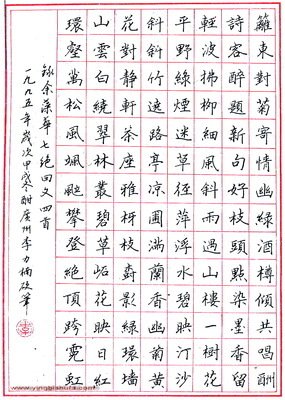 籬東對菊寄情幽綠酒樽傾共唱酬
詩客醉題新句好枝頭點染墨香留
輕波拂柳細風斜雨過山樓一樹花
平野綠煙迷草徑萍浮水碧映汀沙
斜斜竹遮路亭涼圃滿蘭香幽菊黃
花對靜軒茶座雅枒枝壽影綠環墻
山雲白繞翠林叢碧草岵花映日紅
環壑萬松風颯颯攀登絕頂跨霓虹
錄余葆華七絕回文四首
一九九五年歲次甲戌冬酣廣州李力楠硬筆
www.yingbishufa.com